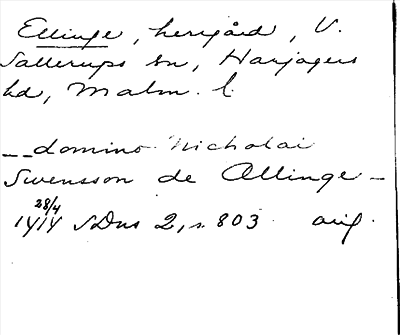 Ellinge, herrgård, V.
Sallerups sn, Harjagers
hd, Malm. l.
__ domino Nicholai
Swensson de Ellinge –
28/4
1414 SDns 2, s. 803 orig.